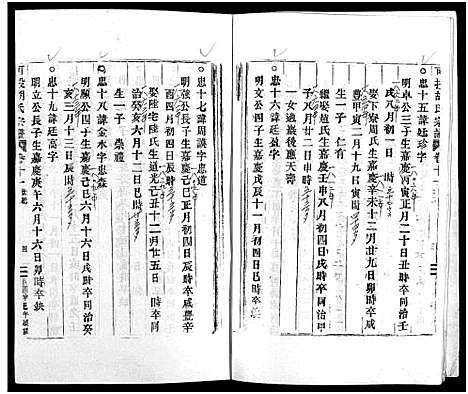 忠十五諱廷珍字
明卓公三子生嘉慶丙寅正月二十日丑時卒同治壬
戌八月初一日 時
娶下寮周氏生嘉慶辛未十二月廿九日卯時卒咸
豐甲寅二月十九日寅時
生一子 仁肴
繼娶趙氏生嘉慶壬申八月初四日戌時卒同治甲
子八月廿二日申時
一女適 後應天壽
忠十六諱 字
明文公四子生嘉慶戊辰十一月初四日巳時卒
忠十七諱周謨字忠道
明發公長子生嘉慶己巳正月初九日辰時卒咸豐辛
酉四月初四日辰時
娶陸宅陸氏生道光己丑十二月廿五日 時卒同
治癸亥六月十二日巳時
生一子 崇禮
忠十八諱金水字忠森
明顯公四子生嘉慶己巳六月十六日戌時卒同治癸
亥三月十三日辰時
忠十九諱廷高字
明立公長子生嘉慶庚午六月十六日卯時卒缺